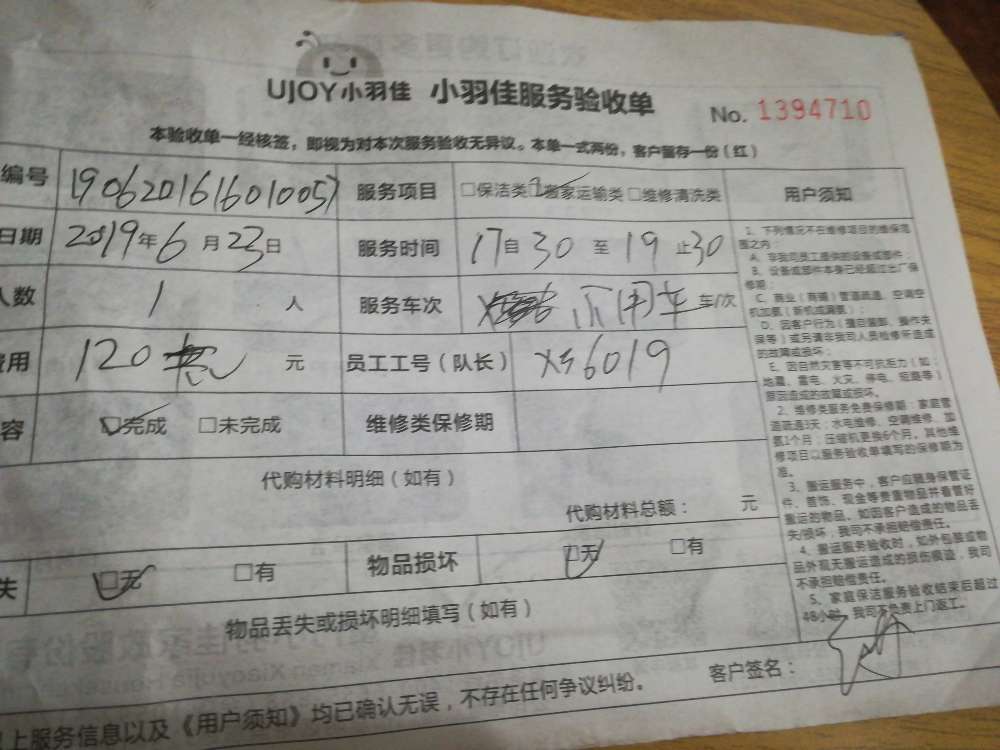 UJOY小羽佳 小羽佳服务验收单 No. 1394710
本验收单一经核签，即视为对本次服务验收无异议。本单一式两份，客户留存一份（红）
编号 服务项目 □保洁类 搬家运输类 □维修清洗类 用户须知
日期 2019年6月23日 服务时间 17自30至19止30
人数 1 人 服务车次 不用车 车/次
费用 120 元 员工工号（队长） 6019
容 完成 □未完成 维修类保修期
代购材料明细（如有）
代购材料总额： 元
失 □无 □有 物品损坏 □无 □有
物品丢失或损坏明细填写（如有）
上服务信息以及《用户须知》均已确认无误，不存在任何争议纠纷。 客户签名：
1、下列情况不在维修项目的维保范
围之内：
A、非我司员工提供的设备或部件；
B、设备或部件本身已经超过出厂保
修期；
C、商业（商铺）管道疏通、空调空
机加氨（新机或漏氨）；
D、因客户行为（擅自装卸、操作失
保等）或另请非我司人员检修所造成
的故障或损坏；
E、因自然灾害等不可抗拒力（如：
地震、雷电、火灾、停电、短路等）
原因造成的故障或损坏。
2、维修类服务免费保修期：家庭管
道疏通3天；水电维修、空调维修、加
氨1个月；压缩机更换6个月。其他维
修项目以服务验收单填写的保修期为
准。
3、搬运服务中，客户应随身保管证
件、首饰、现金等贵重物品并看管好
搬运的物品，如因客户造成的物品丢
失/损坏，我司不承担赔偿责任。
4、搬运服务验收时，如外包装或物
品外观无搬运造成的损伤痕迹，我司
不承担赔偿责任。
5、家庭保洁服务验收结束后超过
48小时，我司不负责上门返工。